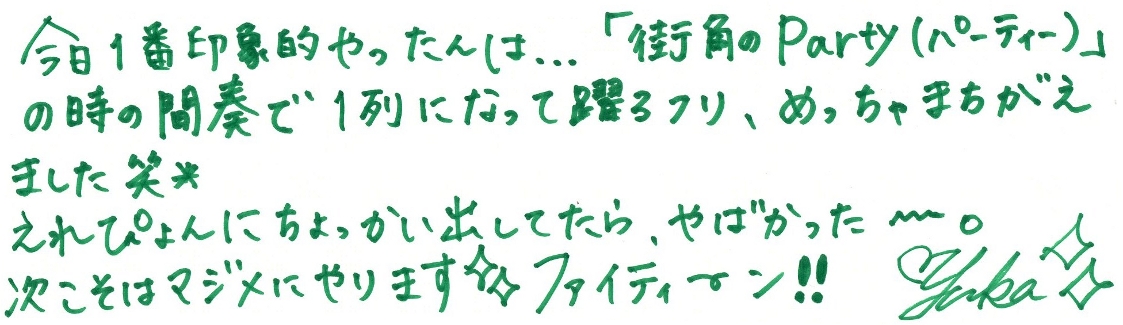 今日1番印象的やったんは…「街角のParty(パーティー)」
の時の間奏で1列になって躍るフリ、めっちゃまちがえ
ました笑*
えれぴょんにちょっかい出してたら、やばかった〜。
次こそはマジメにやりますファイティーン!!
Yuka